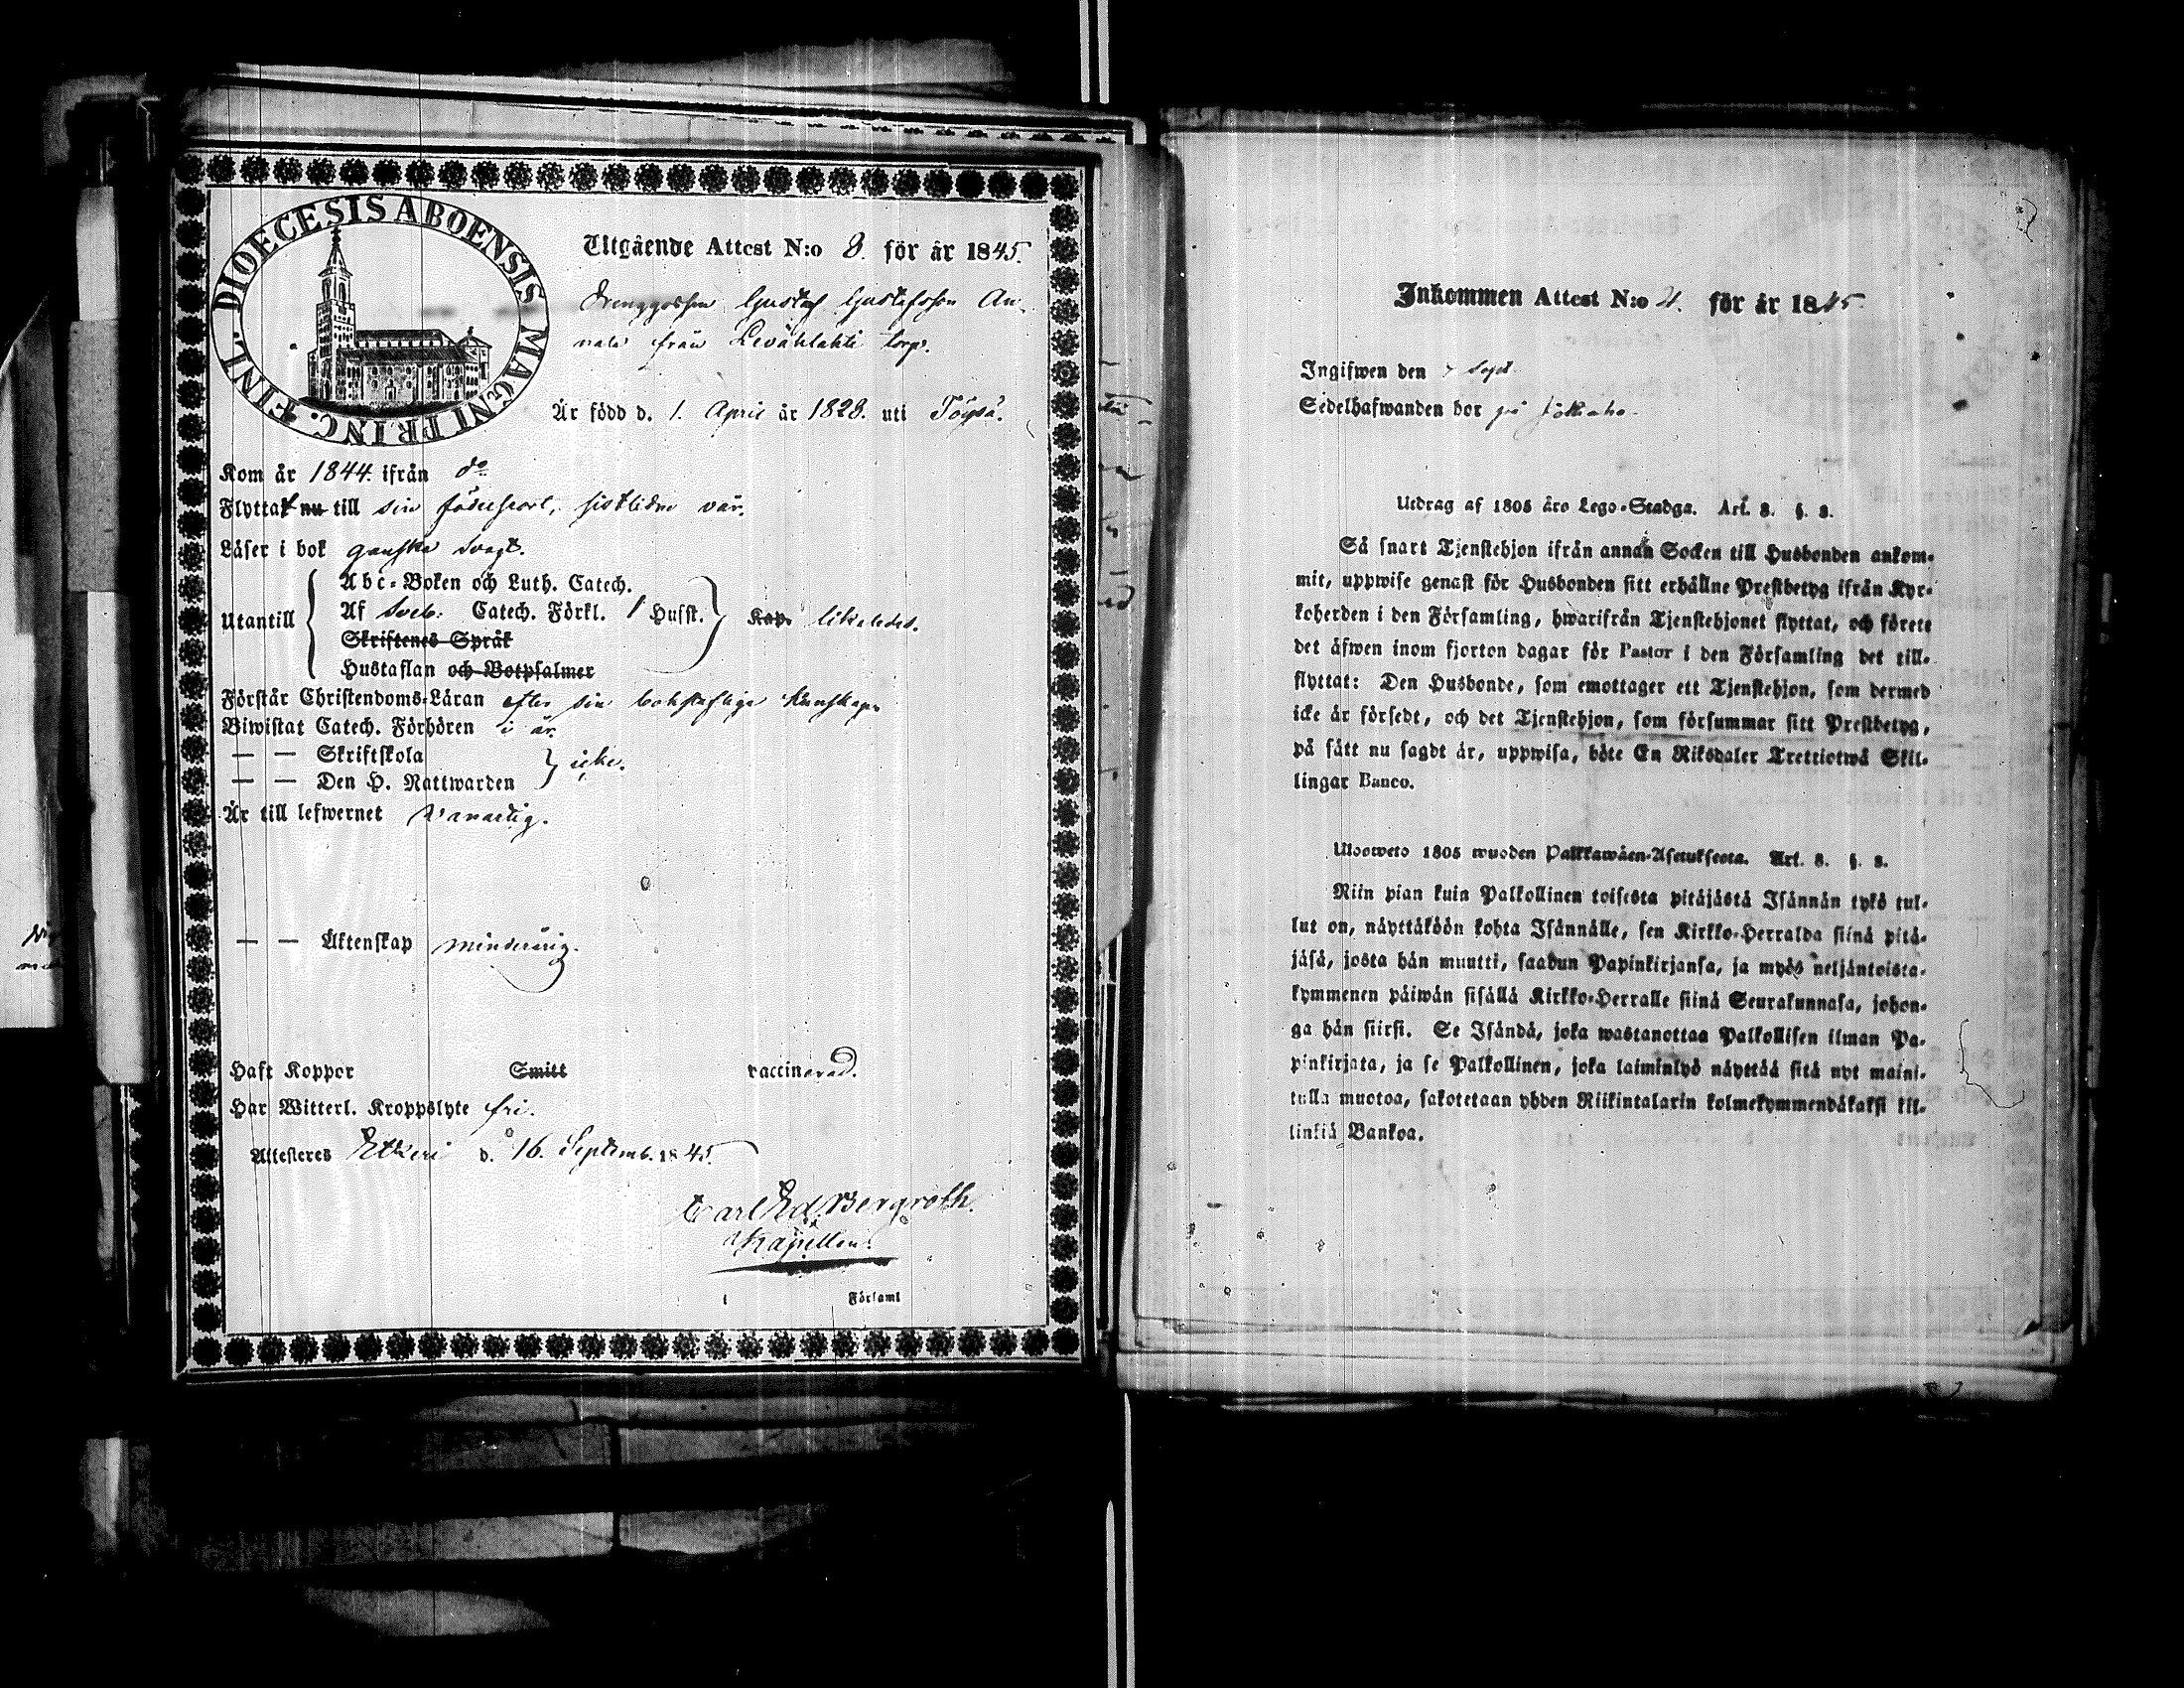 DIOECESIS ABOENSIS MAGNI PRINC. FINL.
Utgående Attest N:o 8. för år 1845.
Drenggossen Gustaf Gustafsson An-
nala från Levählahti torp.
Är född d. 1. April år 1828. uti Töysä.
Kom år 1844. ifrån do
Flyttat nu till sin födelseort, sistliden vår.
Läser i bok ganska svagt.
Abc-Boken och Luth. Catech.
Utantill Af Sveb. Catech. Förkl. / Husst. Kap. likaledes.
Skriftenes Språk
Hustaflan och Botpsalmer
Förstår Christendoms-Läran efter sin bokstafliga kunskap.
Biwistat Catech. Förhören i år.
— — Skriftskola
— — Den H. Nattwarden icke.
Är till lefwernet vanartig.
— — Äktenskap minderårig.
Haft Koppor Smitt vaccinerad.
Har Witterl. Kroppslyte fri.
Attesteres Etseri d. 16. Septemb. 1845.
Carl Ed. Bergroth.
Kapellan.
i Församl
Inkommen Attest N:o 4. för år 1845
Ingifwen den Sept.
Sedelhafwanden bor på
Utdrag af 1805 års Lego-Stadga. Art. 8. §. 8.
Så snart Tjenstehjon ifrån annan Socken till Husbonden ankom-
mit, uppwise genast för Husbonden sitt erhållne Prestbetyg ifrån Kyr-
koherden i den Församling, hwarifrån Tjenstehjonet flyttat, och förete
det äfwen inom fjorton dagar för Pastor i den Församling det till-
flyttat: Den Husbonde, som emottager ett Tjenstehjon, som dermed
icke är försedt, och det Tjenstehjon, som försummar sitt Prestbetyg,
på sätt nu sagdt är, uppwisa, böte En Riksdaler Trettiotwå Skil-
lingar Banco.
Ulosweto 1805 wuoden Palkkawäen-Asetuksesta. Art. 8. §. 8.
Niin pian kuin Palkollinen toisesta pitäjästä Isännän tykö tul-
lut on, näyttäköön kohta Isännälle, sen Kirkko-Herralda siinä pitä-
jäsä, josta hän muutti, saadun Papinkirjansa, ja myös neljäntoista-
kymmenen päiwän sisällä Kirkko-Herralle siinä Seurakunnasa, johon-
ga hän siirsi. Se Isändä, joka wastanottaa Palkollisen ilman Pa-
pinkirjata, ja se Palkollinen, joka laiminlyö näyttää sitä nyt maini-
tulla muotoa, sakotetaan yhden Riikintalarin kolmekymmendäkaksi kil-
linkiä Bankoa.